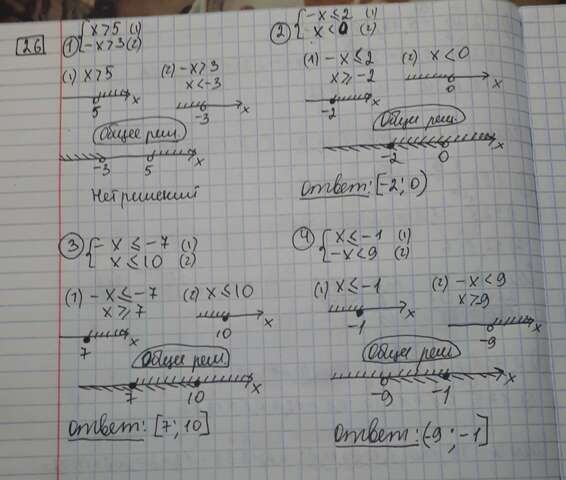 26
1) { x > 5 (1)
-x > 3 (2)
(1) x > 5
(2) -x > 3
x < -3
5 x
-3 x
Общее реш
-3 5 x
Нет решений
2) { -x ≤ 2 (1)
x < 0 (2)
(1) -x ≤ 2
x ≥ -2
(2) x < 0
-2 x
0 x
Общее реш.
-2 0 x
Ответ: [-2; 0)
3) { -x ≤ -7 (1)
x ≤ 10 (2)
(1) -x ≤ -7
x ≥ 7
(2) x ≤ 10
7 x
10 x
Общее реш
7 10 x
Ответ: [7; 10]
4) { x ≤ -1 (1)
-x < 9 (2)
(1) x ≤ -1
(2) -x < 9
x > 9
-1 x
-9 x
Общее реш
-9 -1 x
Ответ: (-9; -1]